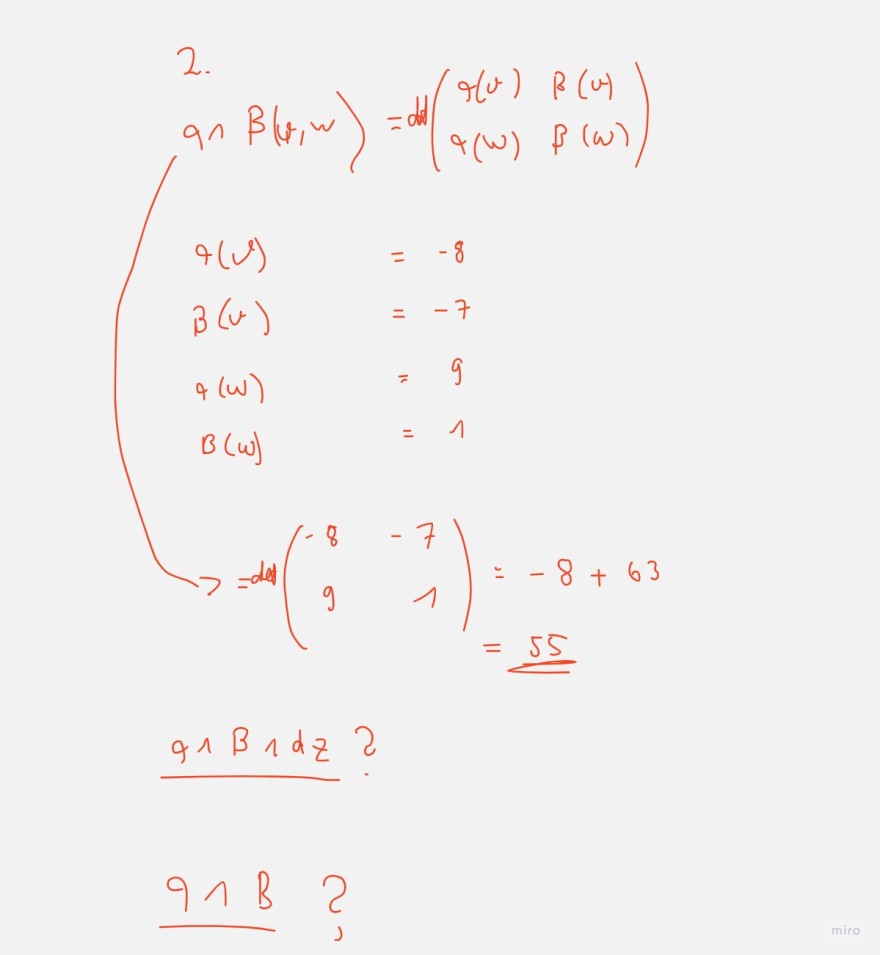 2.
α ∧ B(v, w) = det ( α(v) B(v)
α(w) B(w) )
α(v) = -8
B(v) = -7
α(w) = 9
B(w) = 1
→ = det ( -8 -7
9 1 ) = -8 + 63
= 55
α ∧ B ∧ dz ?
α ∧ B ?
miro